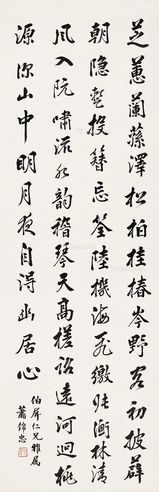 芝蕙蘭蓀澤松柏桂椿岑野客初披薜
朝隱蹔投簪忘筌陸機海飛繳臥淵林清
風入阮嘯流水韻嵇琴天高槎詣遠河迥桃
源深山中明月夜自得幽居心
伯屏仁兄雅屬
蕭錦忠